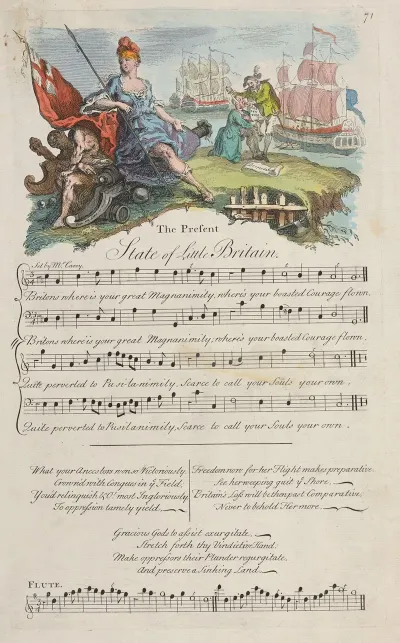 71
The Present
State of Little Britain.
Set by Mr. Carey.
Britons where is your great Magnanimity, where's your boasted Courage flown,
Britons where is your great Magnanimity, where's your boasted Courage flown,
Quite perverted to Pusilanimity, Scarce to call your Souls your own.
Quite perverted to Pusilanimity, Scarce to call your Souls your own.
What your Ancestors won so Victoriously
Crown'd with Conquest in ye Field,
You'd relinquish &c! most Ingloriously
To oppression tamely yield.
Freedom now for her Flight makes preparative
See her weeping quit ye Shore.
Britain's Loss will be then past Comparative,
Never to behold Her more.
Gracious Gods to assist exurgitate,
Stretch forth thy Vindictive Hand.
Make oppressors their Plunder regurgitate,
And preserve a Sinking Land.
FLUTE.